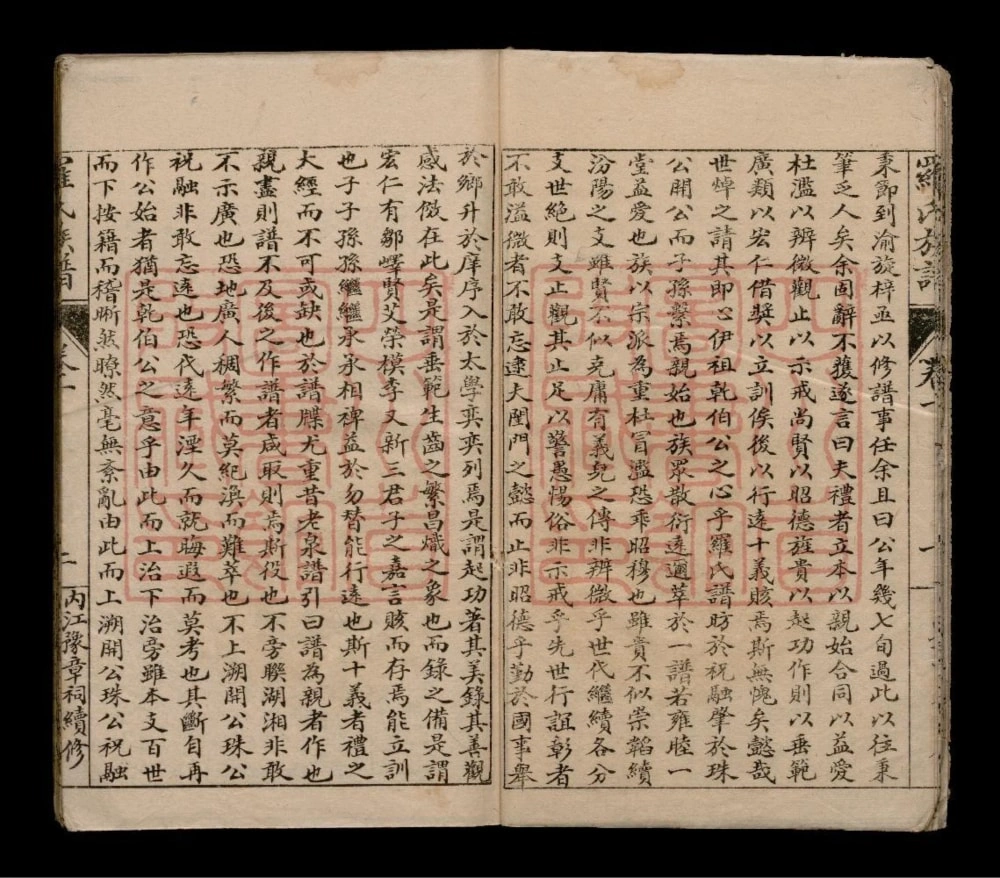 羅氏族譜 卷一 一
秉節到渝旋梓亟以修譜事任余且曰公年幾七旬過此以往秉
筆乏人矣余固辭不獲遂言曰夫禮者立本以親始合同以益愛
杜濫以辨微觀止以示戒尚賢以昭德旌貴以起功作則以垂範
廣類以宏仁借獎以立訓俟後以行遠十義賅焉斯無愧矣懿哉
世焯之請其即心伊祖乾伯公之心乎羅氏譜昉於祝融肇於珠
公開公而子孫繫焉親始也族眾散衍遠邇萃於一譜若雍睦一
堂益愛也族以宗派為重杜冒濫恐乖昭穆也雖貴不似崇韜續
汾陽之支雖賢不似克庸有義兒之傳非辨微乎世代繼續各分
支世絕則支止觀其止足以警愚惕俗非示戒乎先世行誼彰者
不敢溢微者不敢忘逮夫閨門之懿而止非昭德乎勤於國事舉
於鄉升於庠序入於太學奕奕列焉是謂起功著其美錄其善觀
感法倣在此矣是謂垂範生齒之繁昌熾之象也而錄之備是謂
宏仁有鄒嶧賢艾榮模李又新三君子之嘉言賅而存焉能立訓
也子子孫孫繼繼承承相裨益於勿替能行遠也斯十義者禮之
大經而不可或缺也於譜牒尤重昔老泉譜引曰譜為親者作也
親盡則譜不及後之作譜者咸取則焉斯役也不旁聯湖湘非敢
不示廣也恐地廣人稠繁而莫紀渙而難萃也不上溯開公珠公
祝融非敢忘遠也恐代遠年湮久而就晦遐而莫考也其斷自再
作公始者猶是乾伯公之意乎由此而上治下治旁雖本支百世
而下按籍而稽晰然瞭然毫無紊亂由此而上溯開公珠公祝融
羅氏族譜 卷一 二 內江豫章祠續修